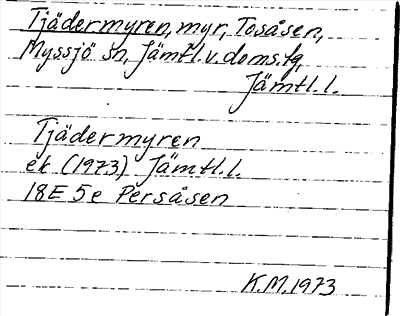 Tjädermyren, myr, Tosåsen,
Myssjö sn, Jämtl. v. doms.fg,
Jämtl. l.
Tjädermyren
ek (1973) Jämtl. l.
18E 5e Persåsen
K.M. 1973